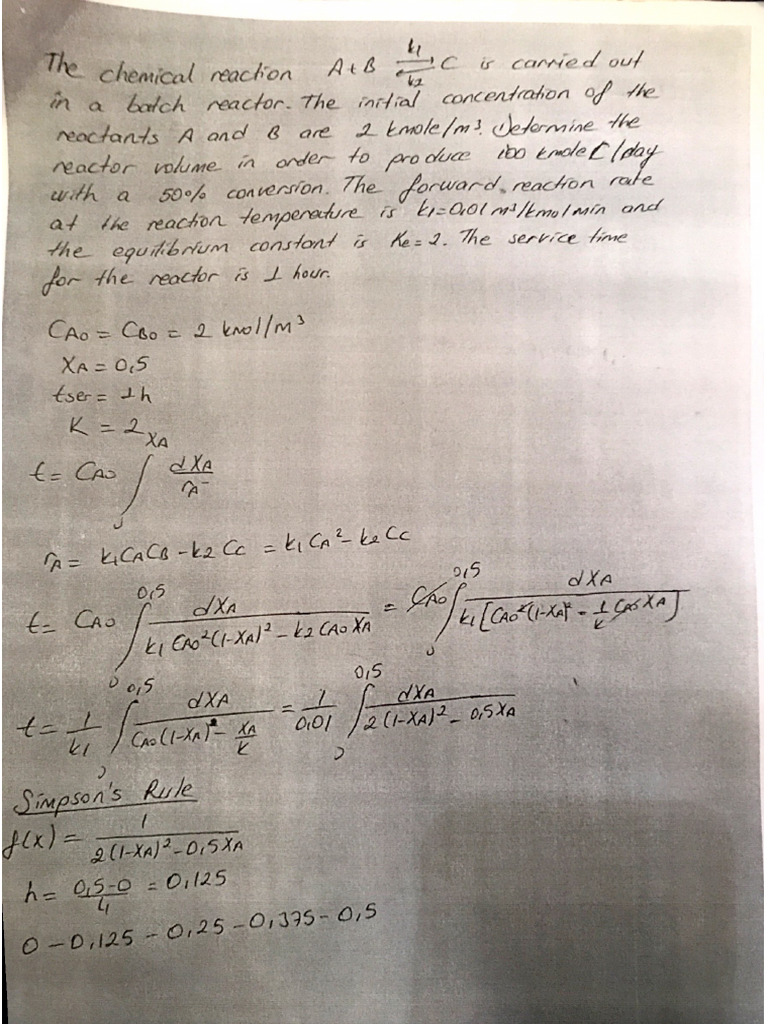 The chemical reaction A+B ⇌ C is carried out
k1
k2
in a batch reactor. The initial concentration of the
reactants A and B are 2 kmole/m³. Determine the
reactor volume in order to produce 100 kmole C/day
with a 50% conversion. The forward reaction rate
at the reaction temperature is k1=0,01 m³/kmol min and
the equilibrium constant is Ke=2. The service time
for the reactor is 1 hour.
CAO = CBO = 2 kmol/m³
XA = 0,5
tser = 1h
K = 2
t = CAO ∫₀^XA dXA / rA⁻
rA = k1CACB - k2 CC = k1 CA² - k2 CC
t = CAO ∫₀^0,5 dXA / (k1 CAO²(1-XA)² - k2 CAO XA) = CAO ∫₀^0,5 dXA / (k1 [CAO²(1-XA)² - 1/K CAO XA])
t = 1/k1 ∫₀^0,5 dXA / (CAO(1-XA)² - XA/K) = 1/0,01 ∫₀^0,5 dXA / (2(1-XA)² - 0,5XA)
Simpson's Rule
f(x) = 1 / (2(1-XA)² - 0,5XA)
h = (0,5-0)/4 = 0,125
0 - 0,125 - 0,25 - 0,375 - 0,5